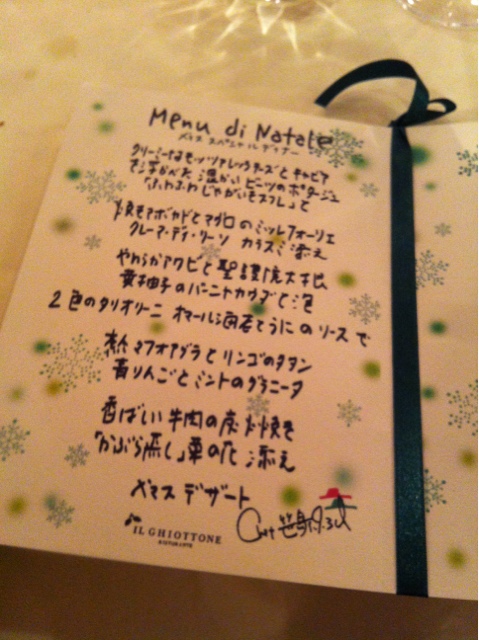 Menu di Natale
スペシャルディナー
クリーミーなモッツァレッラチーズとキャビア
温かいビーツのポタージュ
"ふわふわじゃがいもスフレ"と
焼きアボカドとマグロのミッレフォーリエ
クレーマ・ディ・リーソ カラスミ添え
やわらかアワビと聖護院大根
黄柚子のバーニャカウダと泡
2色のタリオリーニ オマール海老とうにのソースで
フォアグラとリンゴのタタン
青りんごとミントのグラニータ
香ばしい牛肉の炭火焼き
「かぶら蒸し」 添え
デザート
IL GHIOTTONE